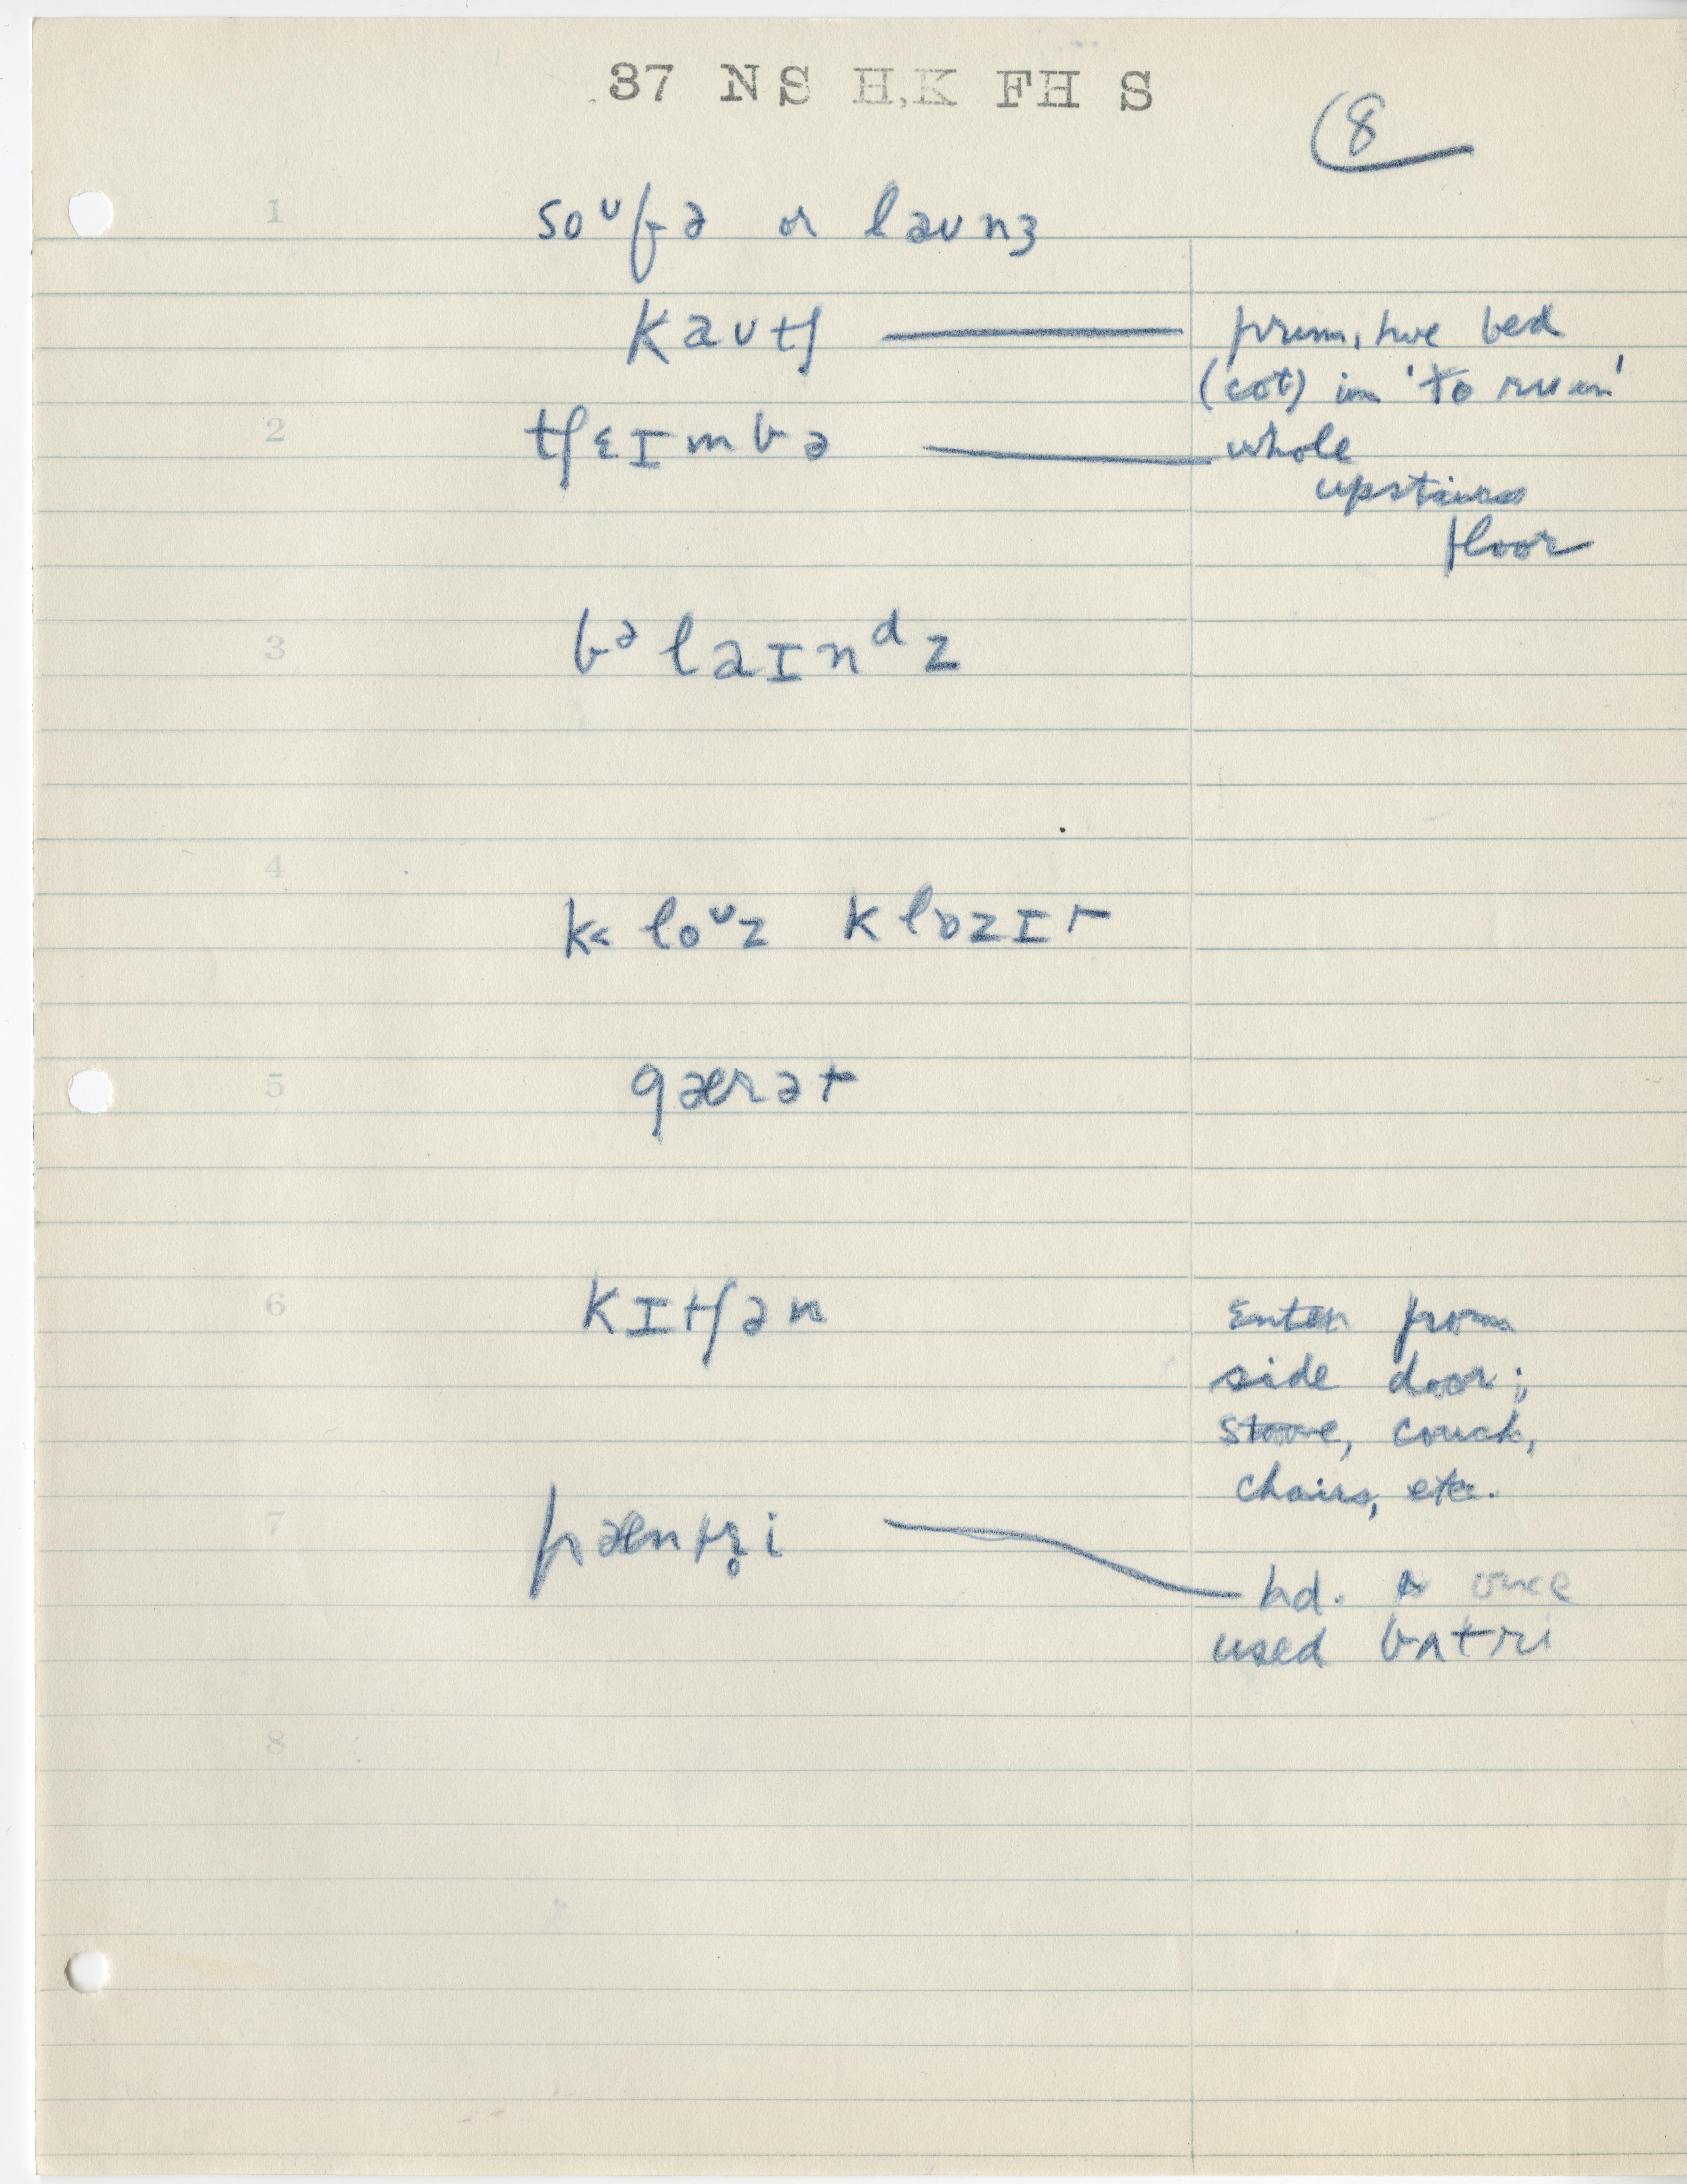 37 NS H,K FH S
(8
1 soᴜfə or laʊnʒ
kaʊtʃ — primitive bed
(cot) in 'to rum'
2 tʃɛɪmbə — whole
upstairs
floor
3 bᵊlaɪnᵈz
4 k< loᶷz klɒzɪt
5 gærət
6 kɪtʃən Enter from
side door;
stove, couch,
chairs, etc.
7 pæntr̥i — hd. once
used bʌtri
8